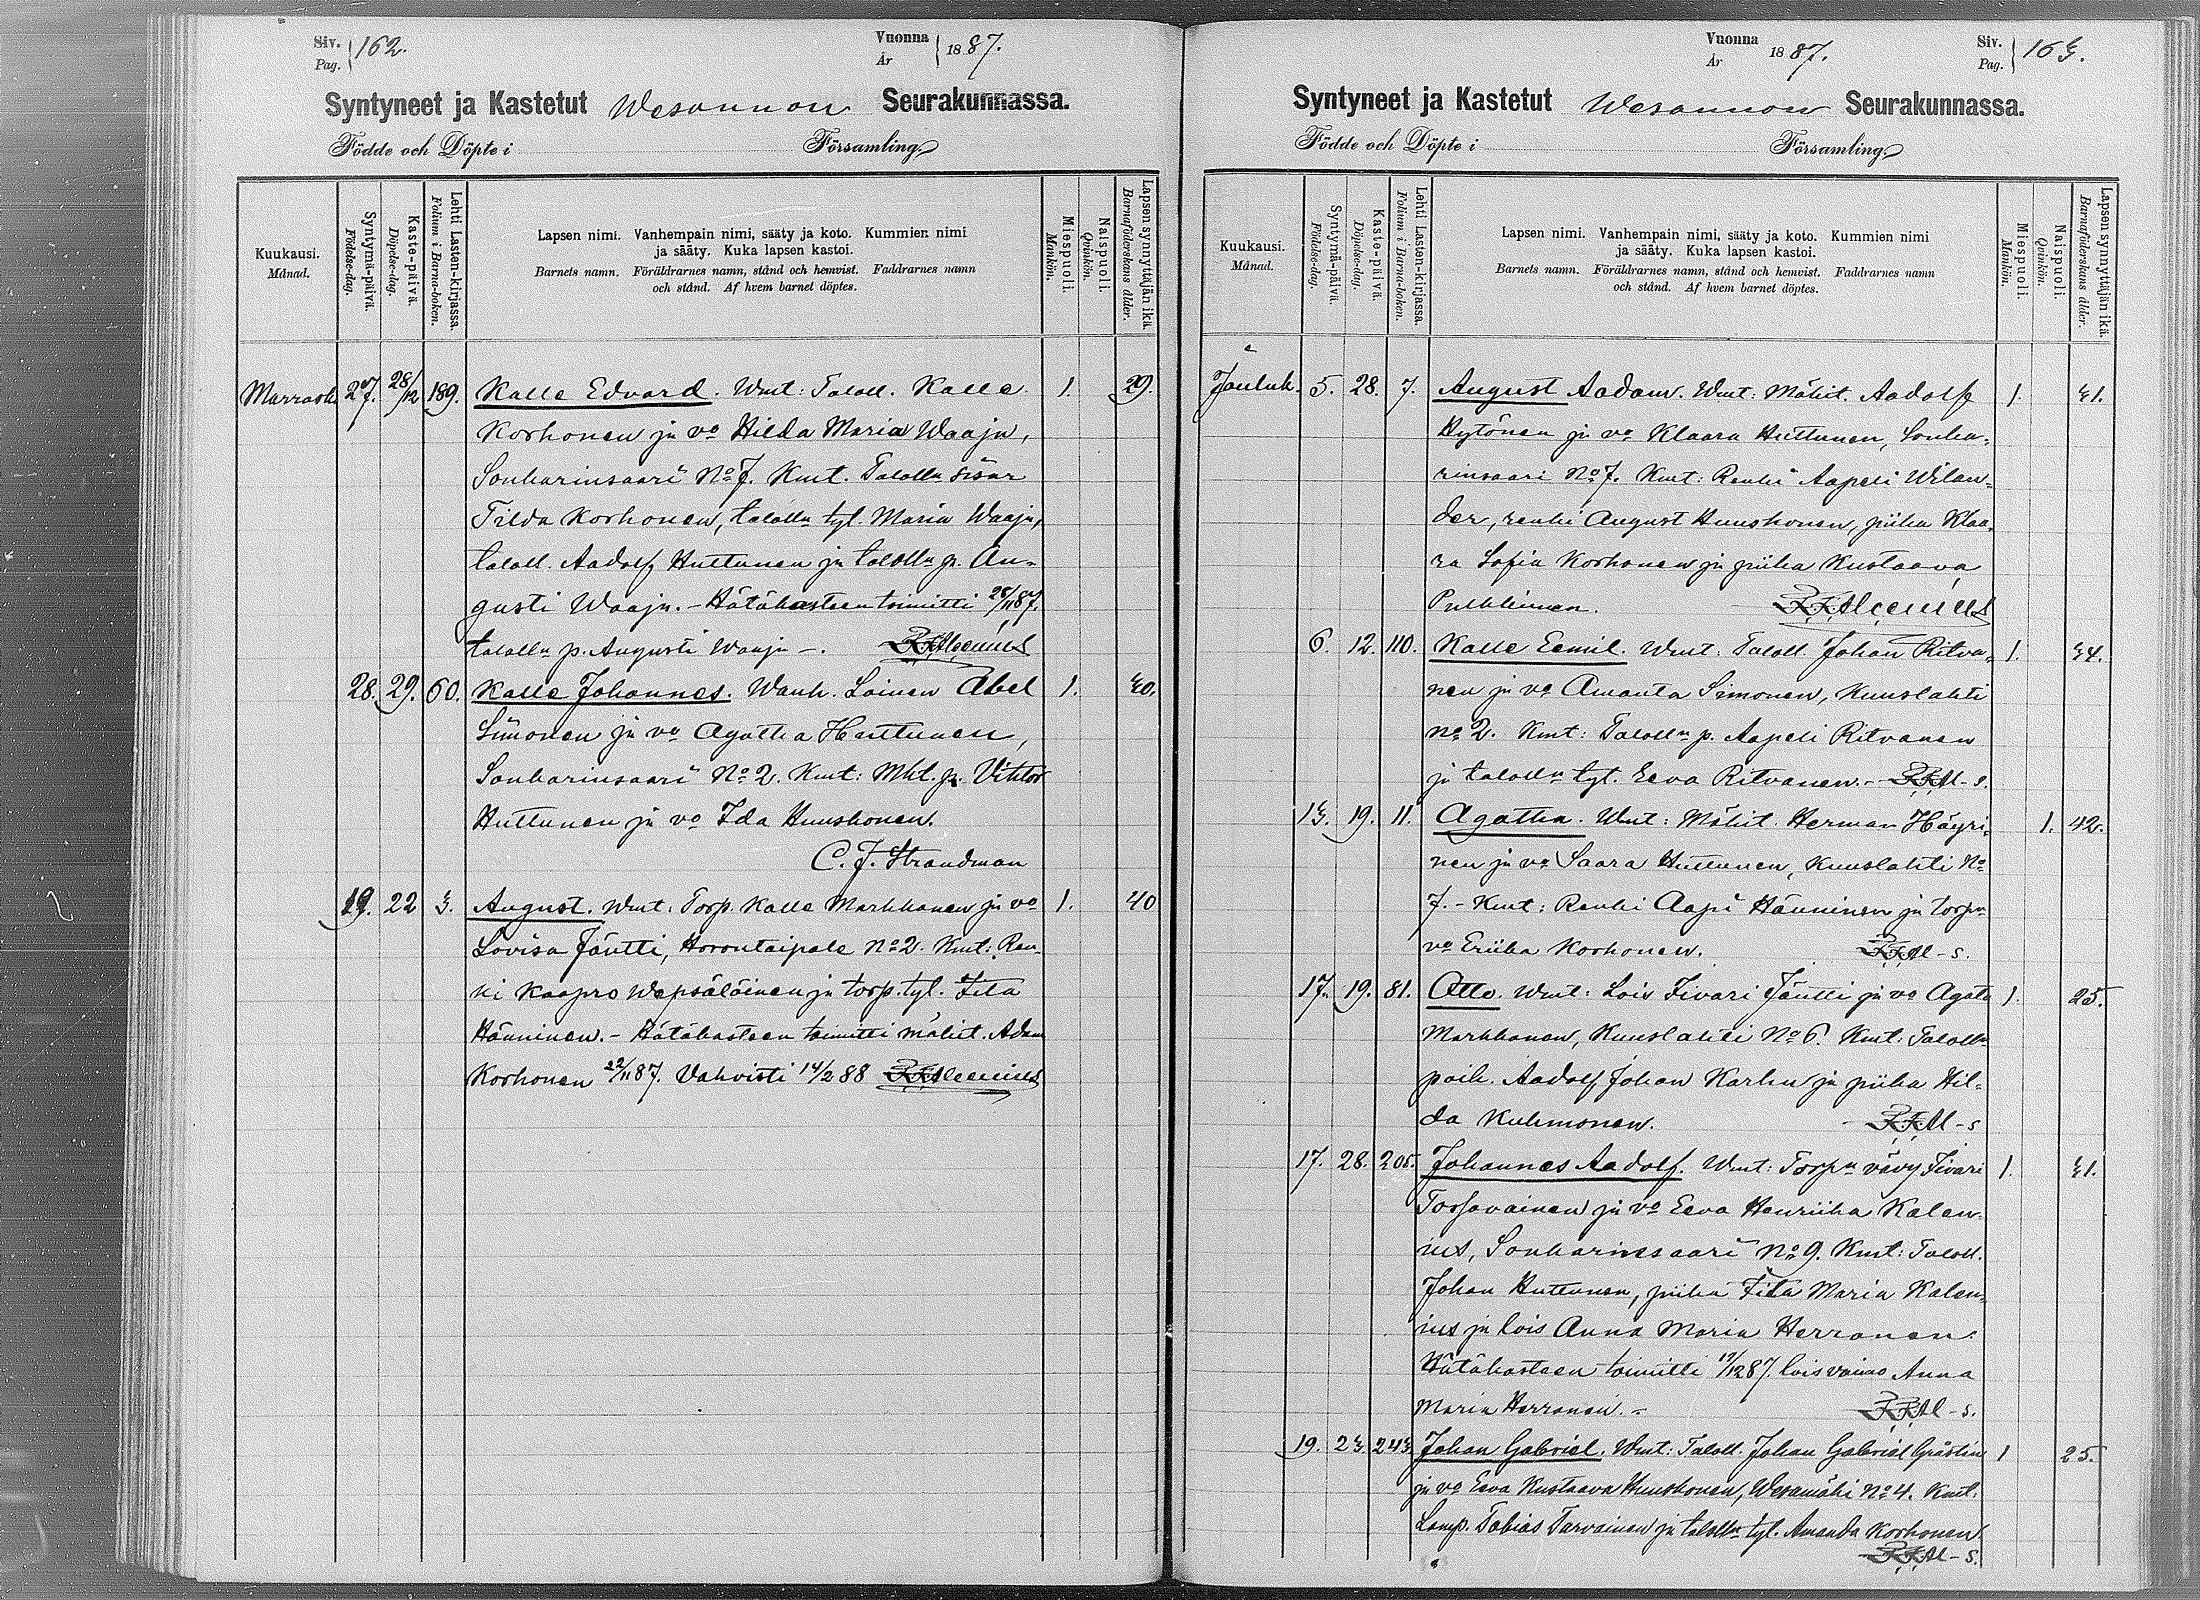 Siv. Pag. 162.
Vuonna År 1887.
Syntyneet ja Kastetut Wesannon Seurakunnassa.
Födde och Döpte i Församling.
Kuukausi. Månad.
Syntymä-päivä. Födelse-dag.
Kaste-päivä. Döpelse-dag.
Lehti Lasten-kirjassa. Folium i Barna-boken.
Lapsen nimi. Vanhempain nimi, sääty ja koto. Kummien nimi
ja sääty. Kuka lapsen kastoi.
Barnets namn. Föräldrarnes namn, stånd och hemvist. Faddrarnes namn
och stånd. Af hvem barnet döptes.
Miespuoli. Mankön.
Naispuoli. Qvinkön.
Lapsen synnyttäjän ikä. Barnaföderskans ålder.
Marrask. 27. 28/12 189. Kalle Edvard. Wmt: Taloll. Kalle 1. 29.
Korhonen ja vo Hilda Maria Waaju,
Sonkarinsaari No 7. Kmt. Talolln sisar
Tilda Korhonen, talolln tyt. Maria Waaju,
taloll. Aadolf Huttunen ja talolln p. Au-
gusti Waaju. - Hätäkasteen toimitti 28/11 87.
talolln p. Augusti Waaju -.
28. 29. 60. Kalle Johannes. Wanh. Loinen Abel 1. 30.
Simonen ja vo Agatha Huttunen,
Sonkarinsaari No 2. Kmt: Mkt. p. Viktor
Huttunen ja vo Ida Huuskonen.
C. J. Strandman
19. 22 3. August. Wmt: Torp. Kalle Markkanen ja vo 1. 40
Lovisa Jäntti, Horontaipale No 2. Kmt: Ren-
ki Kaapro Wepsäläinen ja torp. tyt. Iita
Hänninen. - Hätäkasteen toimitti mäkit. Adam
Korhonen 22/11 87. Vahvisti 14/2 88
Vuonna År 1887.
Siv. Pag. 163.
Syntyneet ja Kastetut Wesannon Seurakunnassa.
Födde och Döpte i Församling.
Kuukausi. Månad.
Syntymä-päivä. Födelse-dag.
Kaste-päivä. Döpelse-dag.
Lehti Lasten-kirjassa. Folium i Barna-boken.
Lapsen nimi. Vanhempain nimi, sääty ja koto. Kummien nimi
ja sääty. Kuka lapsen kastoi.
Barnets namn. Föräldrarnes namn, stånd och hemvist. Faddrarnes namn
och stånd. Af hvem barnet döptes.
Miespuoli. Mankön.
Naispuoli. Qvinkön.
Lapsen synnyttäjän ikä. Barnaföderskans ålder.
Jouluk. 5. 28. 7. August Aadam. Wmt: Mäkit. Aadolf 1. 31.
Hytönen ja vo Klaara Huttunen, Sonka-
rinsaari No 7. Kmt: Renki Aapeli Wilan-
der, renki August Huuskonen, piika Klaa-
ra Sofia Korhonen ja piika Kustaava
Pulkkinen.
6. 12. 110. Kalle Eemil. Wmt: Taloll. Johan Ritva- 1. 34.
nen ja vo Amanta Simonen, Kuuslahti
No 2. Kmt: Talolln p. Aapeli Ritvanen
ja talolln tyt. Eeva Ritvanen.
13. 19. 11. Agatha. Wmt: Mäkit. Herman Häyri- 1. 42.
nen ja vo Saara Huttunen, Kuuslahti No
7. - Kmt: Renki Aapi Hänninen ja torpn
vo Eriika Korhonen.
17. 19. 81. Otto. Wmt: Lois Iivari Jäntti ja vo Agata 1. 25.
Markkanen, Kuuslahti No 6. Kmt: Talolln
poik. Aadolf Johan Karhu ja piika Hil-
da Kuhmonen.
17. 28. 205. Johannes Aadolf. Wmt: Torpn vävy Iivari 1. 31.
Tossavainen ja vo Eeva Henriika Kalen-
ius, Sonkarinsaari No 9. Kmt: Taloll.
Johan Huttunen, piika Iita Maria Kalen-
ius ja lois Anna Maria Herranen.
Hätäkasteen toimitti 19/12 87. lois vaimo Anna
Maria Herranen. -
19. 23. 243. Johan Gabriel. Wmt: Taloll. Johan Gabriel 1 25.
ja vo Eeva Kustaava Huuskonen, Wesamäki No 4. Kmt:
Lamp. Tobias Tarvainen ja talolln tyt. Amanda Korhonen.